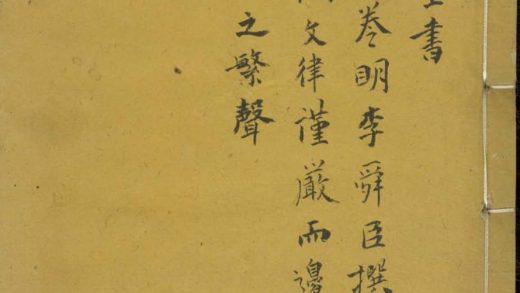 書
卷明李舜臣撰
文律謹嚴而邊
之繁聲